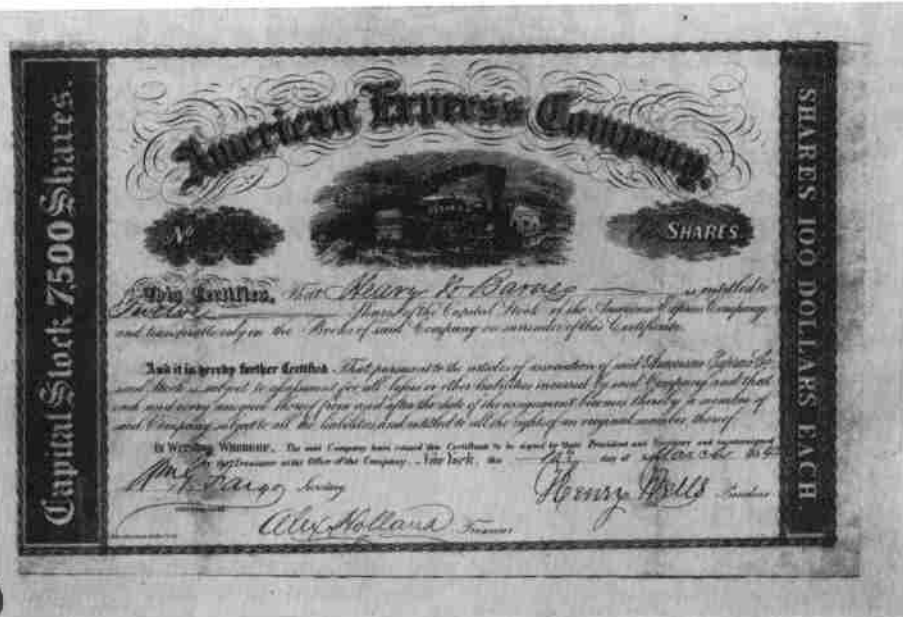 American Express Company.
Capital Stock 7,500 Shares.
No
SHARES
SHARES 100 DOLLARS EACH.
This Certifies, That Henry Barnes is entitled to
Twelve Shares of the Capital Stock of the American Express Company
and transferable only on the Books of said Company on surrender of this Certificate.
And it is hereby further Certified, That pursuant to the articles of association of said American Express Co
said Stock is subject to assessment for all losses or other liabilities incurred by said Company and that
each and every assignee thereof from and after the date of the assignment becomes thereby a member of
said Company subject to all the liabilities and entitled to all the rights of an original member thereof
In Witness Whereof, The said Company have caused this Certificate to be signed by their President and Secretary and countersigned
by the Treasurer at the Office of the Company, New York, the day of March
Wm G. Fargo Secretary
Henry Wells President
Alex Holland Treasurer